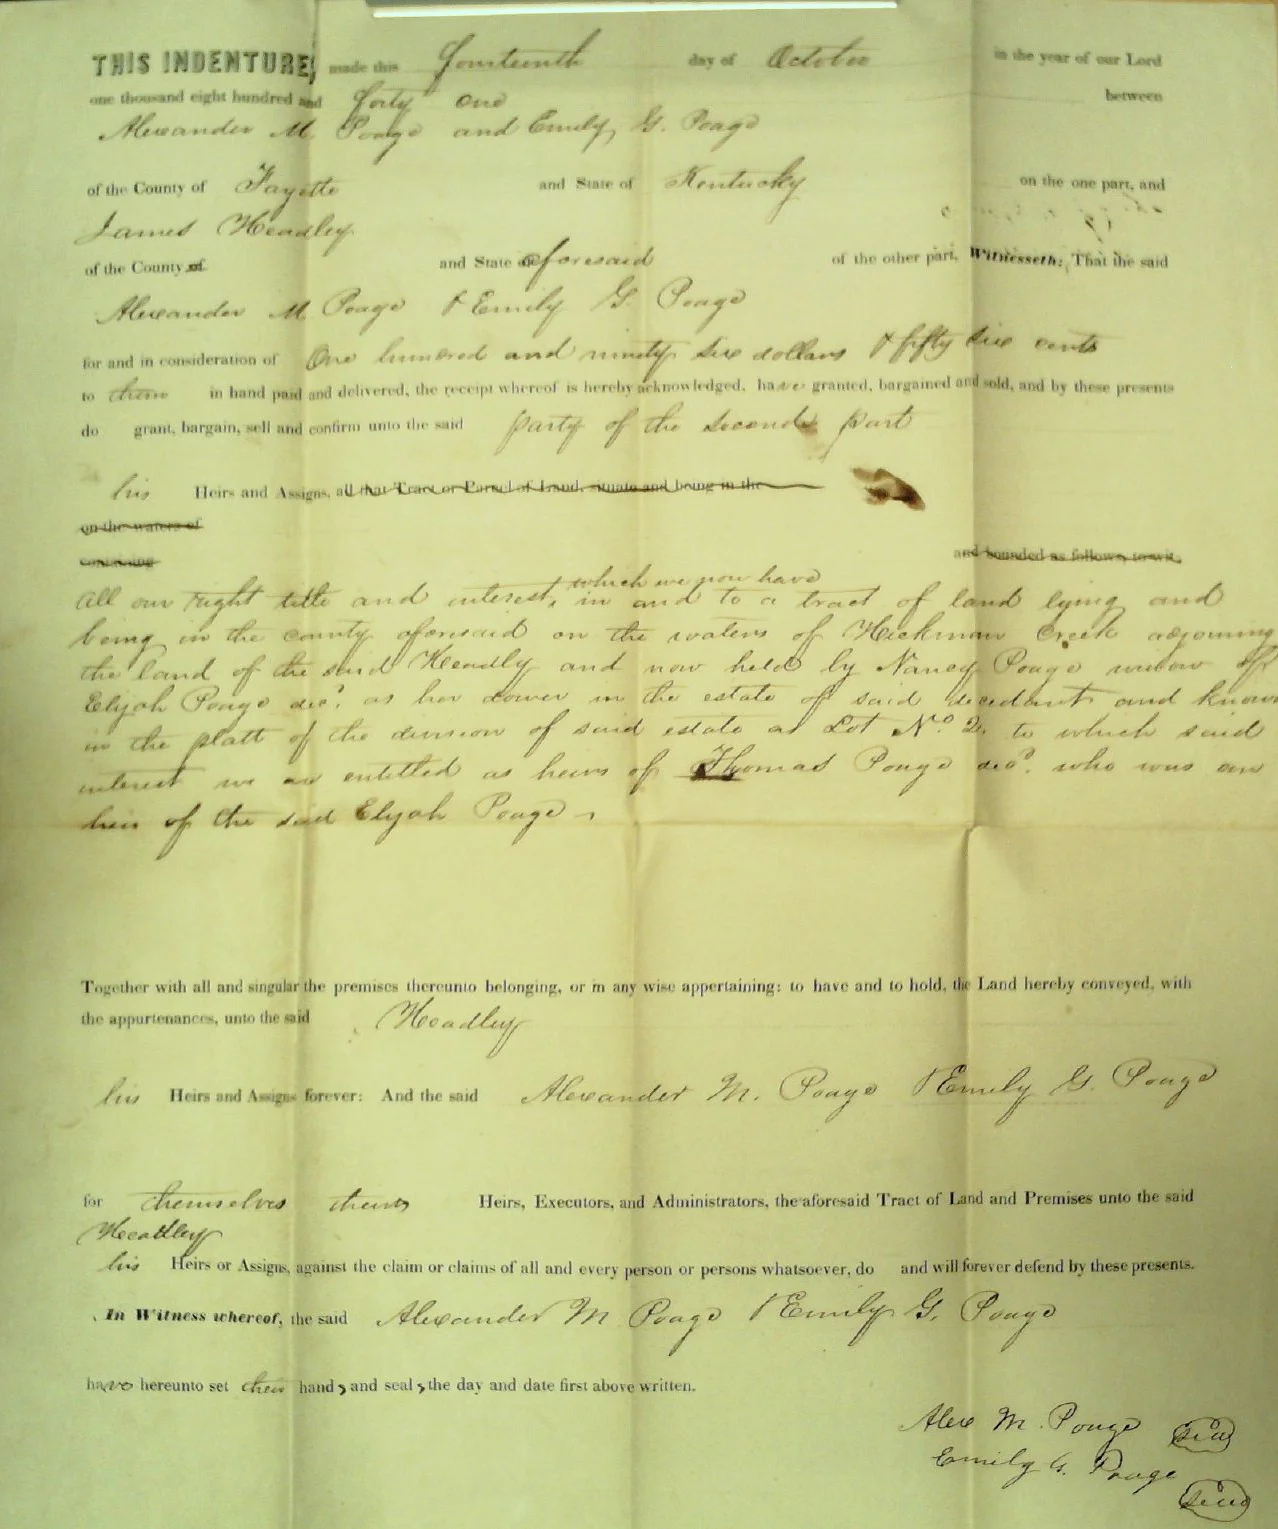 THIS INDENTURE, made this fourteenth day of October in the year of our Lord
one thousand eight hundred and forty one between
Alexander M Poage and Emily G. Poage
of the County of Fayette and State of Kentucky on the one part, and
James Headley
of the County of and State aforesaid of the other part, Witnesseth: That the said
Alexander M Poage & Emily G. Poage
for and in consideration of One hundred and ninety six dollars & fifty six cents
to them in hand paid and delivered, the receipt whereof is hereby acknowledged, have granted, bargained and sold, and by these presents
do grant, bargain, sell and confirm unto the said party of the second part
his Heirs and Assigns, all that Tract or Parcel of Land, situate and being in the
on the waters of
containing and bounded as follows, to wit,
which we now have
all our right title and interest, in and to a tract of land lying and
being in the county aforesaid on the waters of Hickman Creek adjoining
the land of the said Headly and now held by Nancy Poage widow of
Elijah Poage decd. as her dower in the estate of said decedant and known
in the platt of the division of said estate as Lot No. 2, to which said
interest we are entitled as heirs of Thomas Poage decd. who was an
heir of the said Elijah Poage
Together with all and singular the premises thereunto belonging, or in any wise appertaining: to have and to hold, the Land hereby conveyed, with
the appurtenances, unto the said Headley
his Heirs and Assigns forever: And the said Alexander M. Poage & Emily G. Poage
for themselves theirs Heirs, Executors, and Administrators, the aforesaid Tract of Land and Premises unto the said
Headley
his Heirs or Assigns, against the claim or claims of all and every person or persons whatsoever, do and will forever defend by these presents.
In Witness whereof, the said Alexander M Poage & Emily G. Poage
have hereunto set their hands and seals the day and date first above written.
Alex M. Poage seal
Emily G. Poage
seal